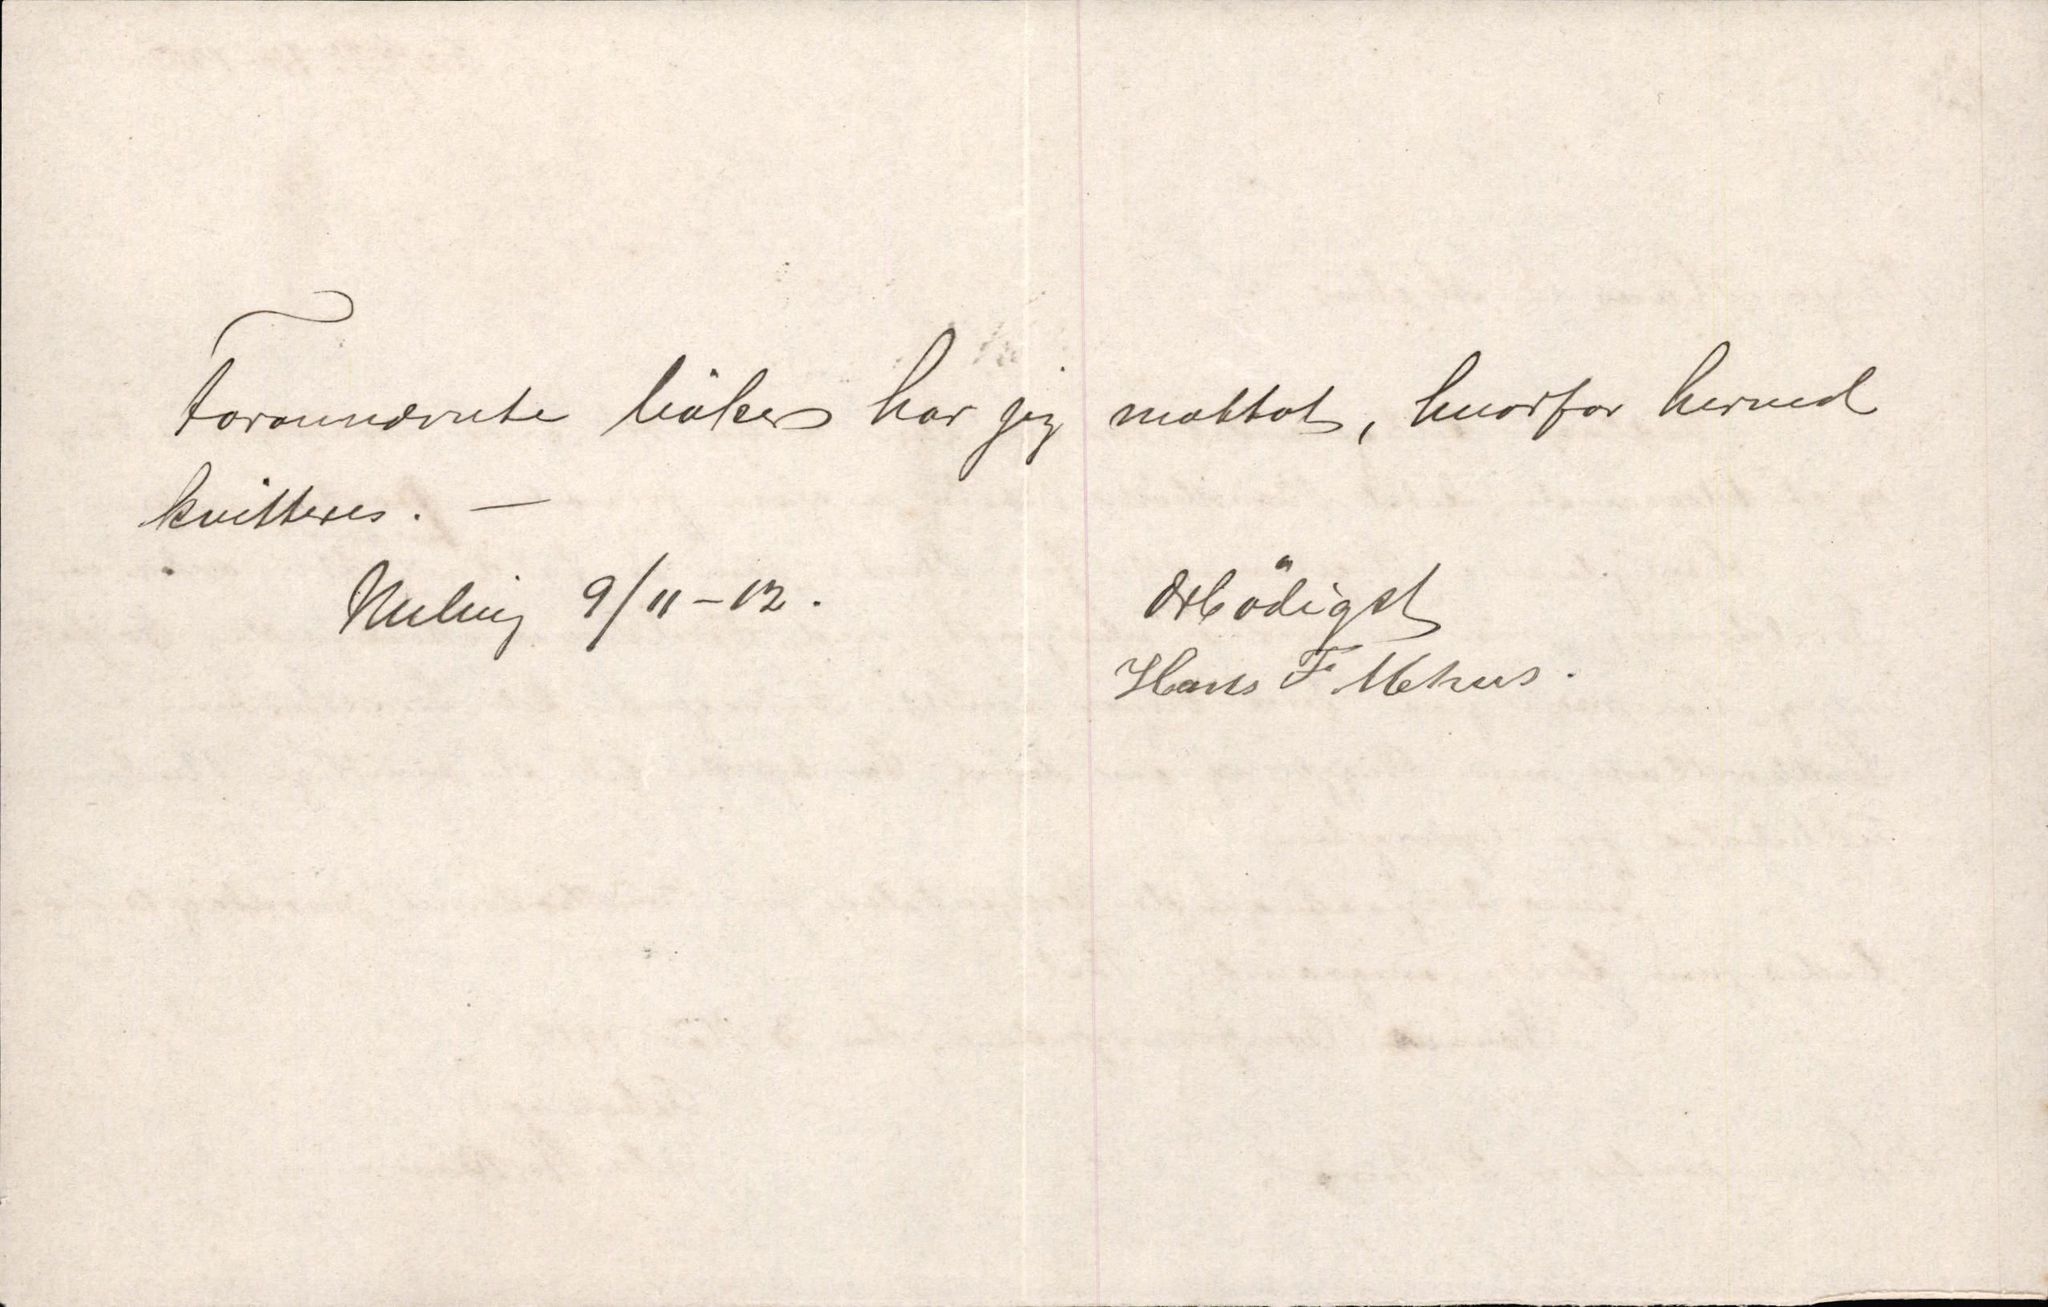 Forannævnte bøker har jeg mottat, hvorfor herved
kvitteres. —
Meling 9/11-12.
Ærbödigst
Hans F Mehus.